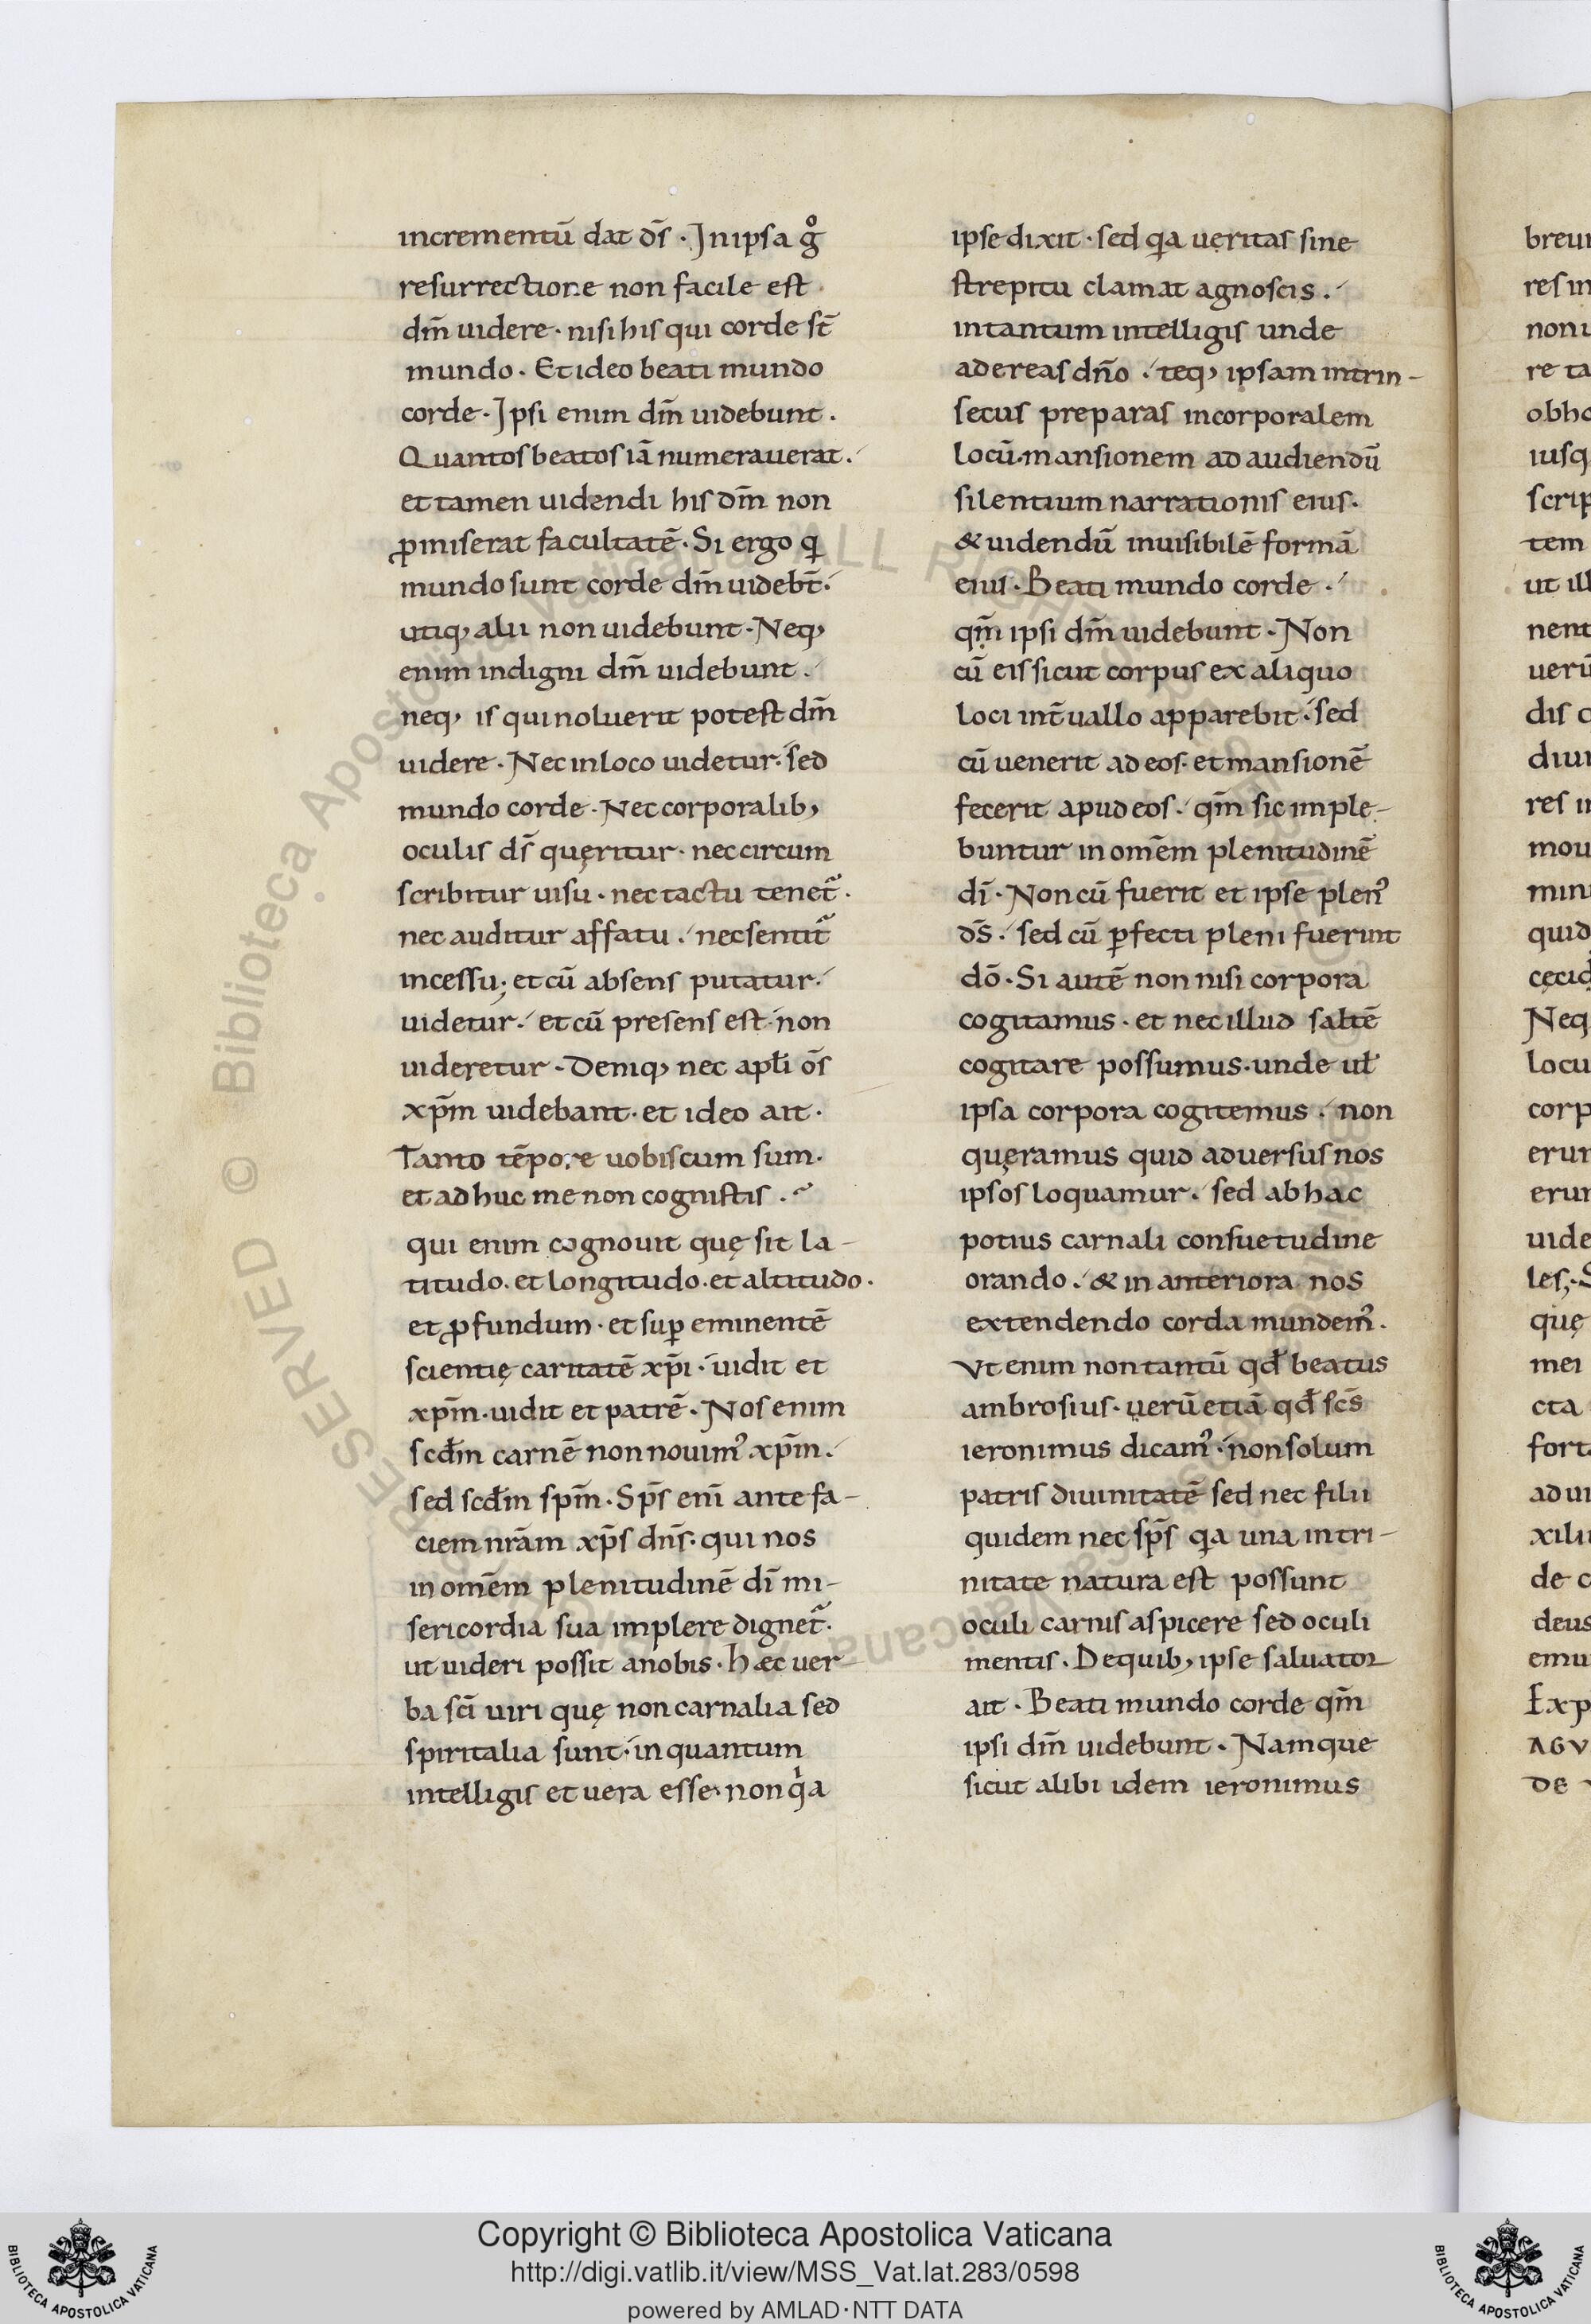 incrementū dat d̄s · In ipsa gº
resurrectione non facile est
dm̄ uidere · nisi his qui corde st̄
mundo · Et ideo beati mundo
corde · Ipsi enim dm̄ uidebunt .
Quantos beatos iā numerauerat ./
et tamen uidendi his dm̄ non
ꝓmiserat facultatē · Si ergo q̄
mundo sunt corde dm̄ uidebt̄ ·
utiq; alii non uidebunt · Neq;
enim indigni dm̄ uidebunt .
neq; is qui noluerit potest dm̄
uidere · Nec in loco uidetur · sed
mundo corde · Nec corporalib;
oculis d̄s quęritur · nec circum
scribitur uisu · nec tactu tenet̃ .
nec auditur affatu . nec sentit̃
incessu; et cū absens putatur ·
uidetur · et cū presens est · non
uideretur · Deniq; nec apłi ōs
xp̄m uidebant · et ideo ait ·
Tanto tēpore uobiscum sum ·
et adhuc me non cognistis .
qui enim cognouit quę sit la-
titudo · et longitudo · et altitudo ·
et ꝓfundum · et suꝑ eminentē
scientię caritatē xp̄i · uidit et
xp̄m · uidit et patrē · Nos enim
scd̄m carnē non nouim⁹ xp̄m .
sed scd̄m spm̄ · Sp̄s enī ante fa-
ciem nr̄am xp̄s dn̄s · qui nos
in om̄em plenitudinē dī mi-
sericordia sua implere dignet̃ ·
ut uideri possit a nobis · hæc uer
ba sc̄i uiri quę non carnalia sed
spiritalia sunt · in quantum
intelligis et uera esse · non qͥa
ipse dixit · sed qa ueritas sine
strepitu clamat agnoscis .
in tantum intelligis unde
adereas dn̄o · teq; ipsam intrin-
secus preparas incorporalem
locū · mansionem ad audiendū
silentium narrationis eius ·
& uidendū inuisibilē formā
eius · Beati mundo corde ·
qm̄ ipsi dm̄ uidebunt · Non
cū eis sicut corpus ex aliquo
loci int̄uallo apparebit · sed
cū uenerit ad eos · et mansionē
fecerit apud eos · qm̄ sic imple-
buntur in om̄em plenitudinē
dī · Non cū fuerit et ipse plen⁹
d̄s · sed cū ꝑfecti pleni fuerint
dō · Si autē non nisi corpora
cogitamus · et nec illud saltē
cogitare possumus · unde uł
ipsa corpora cogitemus · non
quęramus quid aduersus nos
ipsos loquamur · sed ab hac
potius carnali consuetudine
orando · & in anteriora nos
extendendo corda mundem⁹ .
Vt enim non tantū qđ beatus
ambrosius · uerū etiā qđ sc̄s
ieronimus dicam⁹ · non solum
patris diuinitatē sed nec filii
quidem nec sp̄s qa una in tri-
nitate natura est possunt
oculi carnis aspicere sed oculi
mentis · De quib; ipse saluator
ait · Beati mundo corde qm̄
ipsi dm̄ uidebunt · Namque
sicut alibi idem ieronimus
breui
res in
non u
re ta
obho
iusq
scrip
tem
ut ill
nent
uerū
dis q
diui
res in
mou
mini
quid
cęcid
Neq
locu
corp
erun
erun
uide
les; S
quę
mei
cta
forta
ad ui
xiliu
de c
deus
emu
Exp
AGV
DE
© Biblioteca Apostolica Vaticana ALL RIGHTS RESERVED
Copyright © Biblioteca Apostolica Vaticana
http://digi.vatlib.it/view/MSS_Vat.lat.283/0598
powered by AMLAD·NTT DATA
BIBLIOTECA APOSTOLICA VATICANA
BIBLIOTECA APOSTOLICA VATICANA